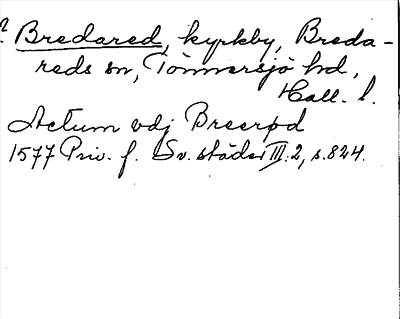 ? Bredared, kyrkby, Breda-
reds sn, Tönnersjö hd,
Hall. l.
Actum vdj Breerød
1577 Priv. f. Sv. städer III.2, s.824.